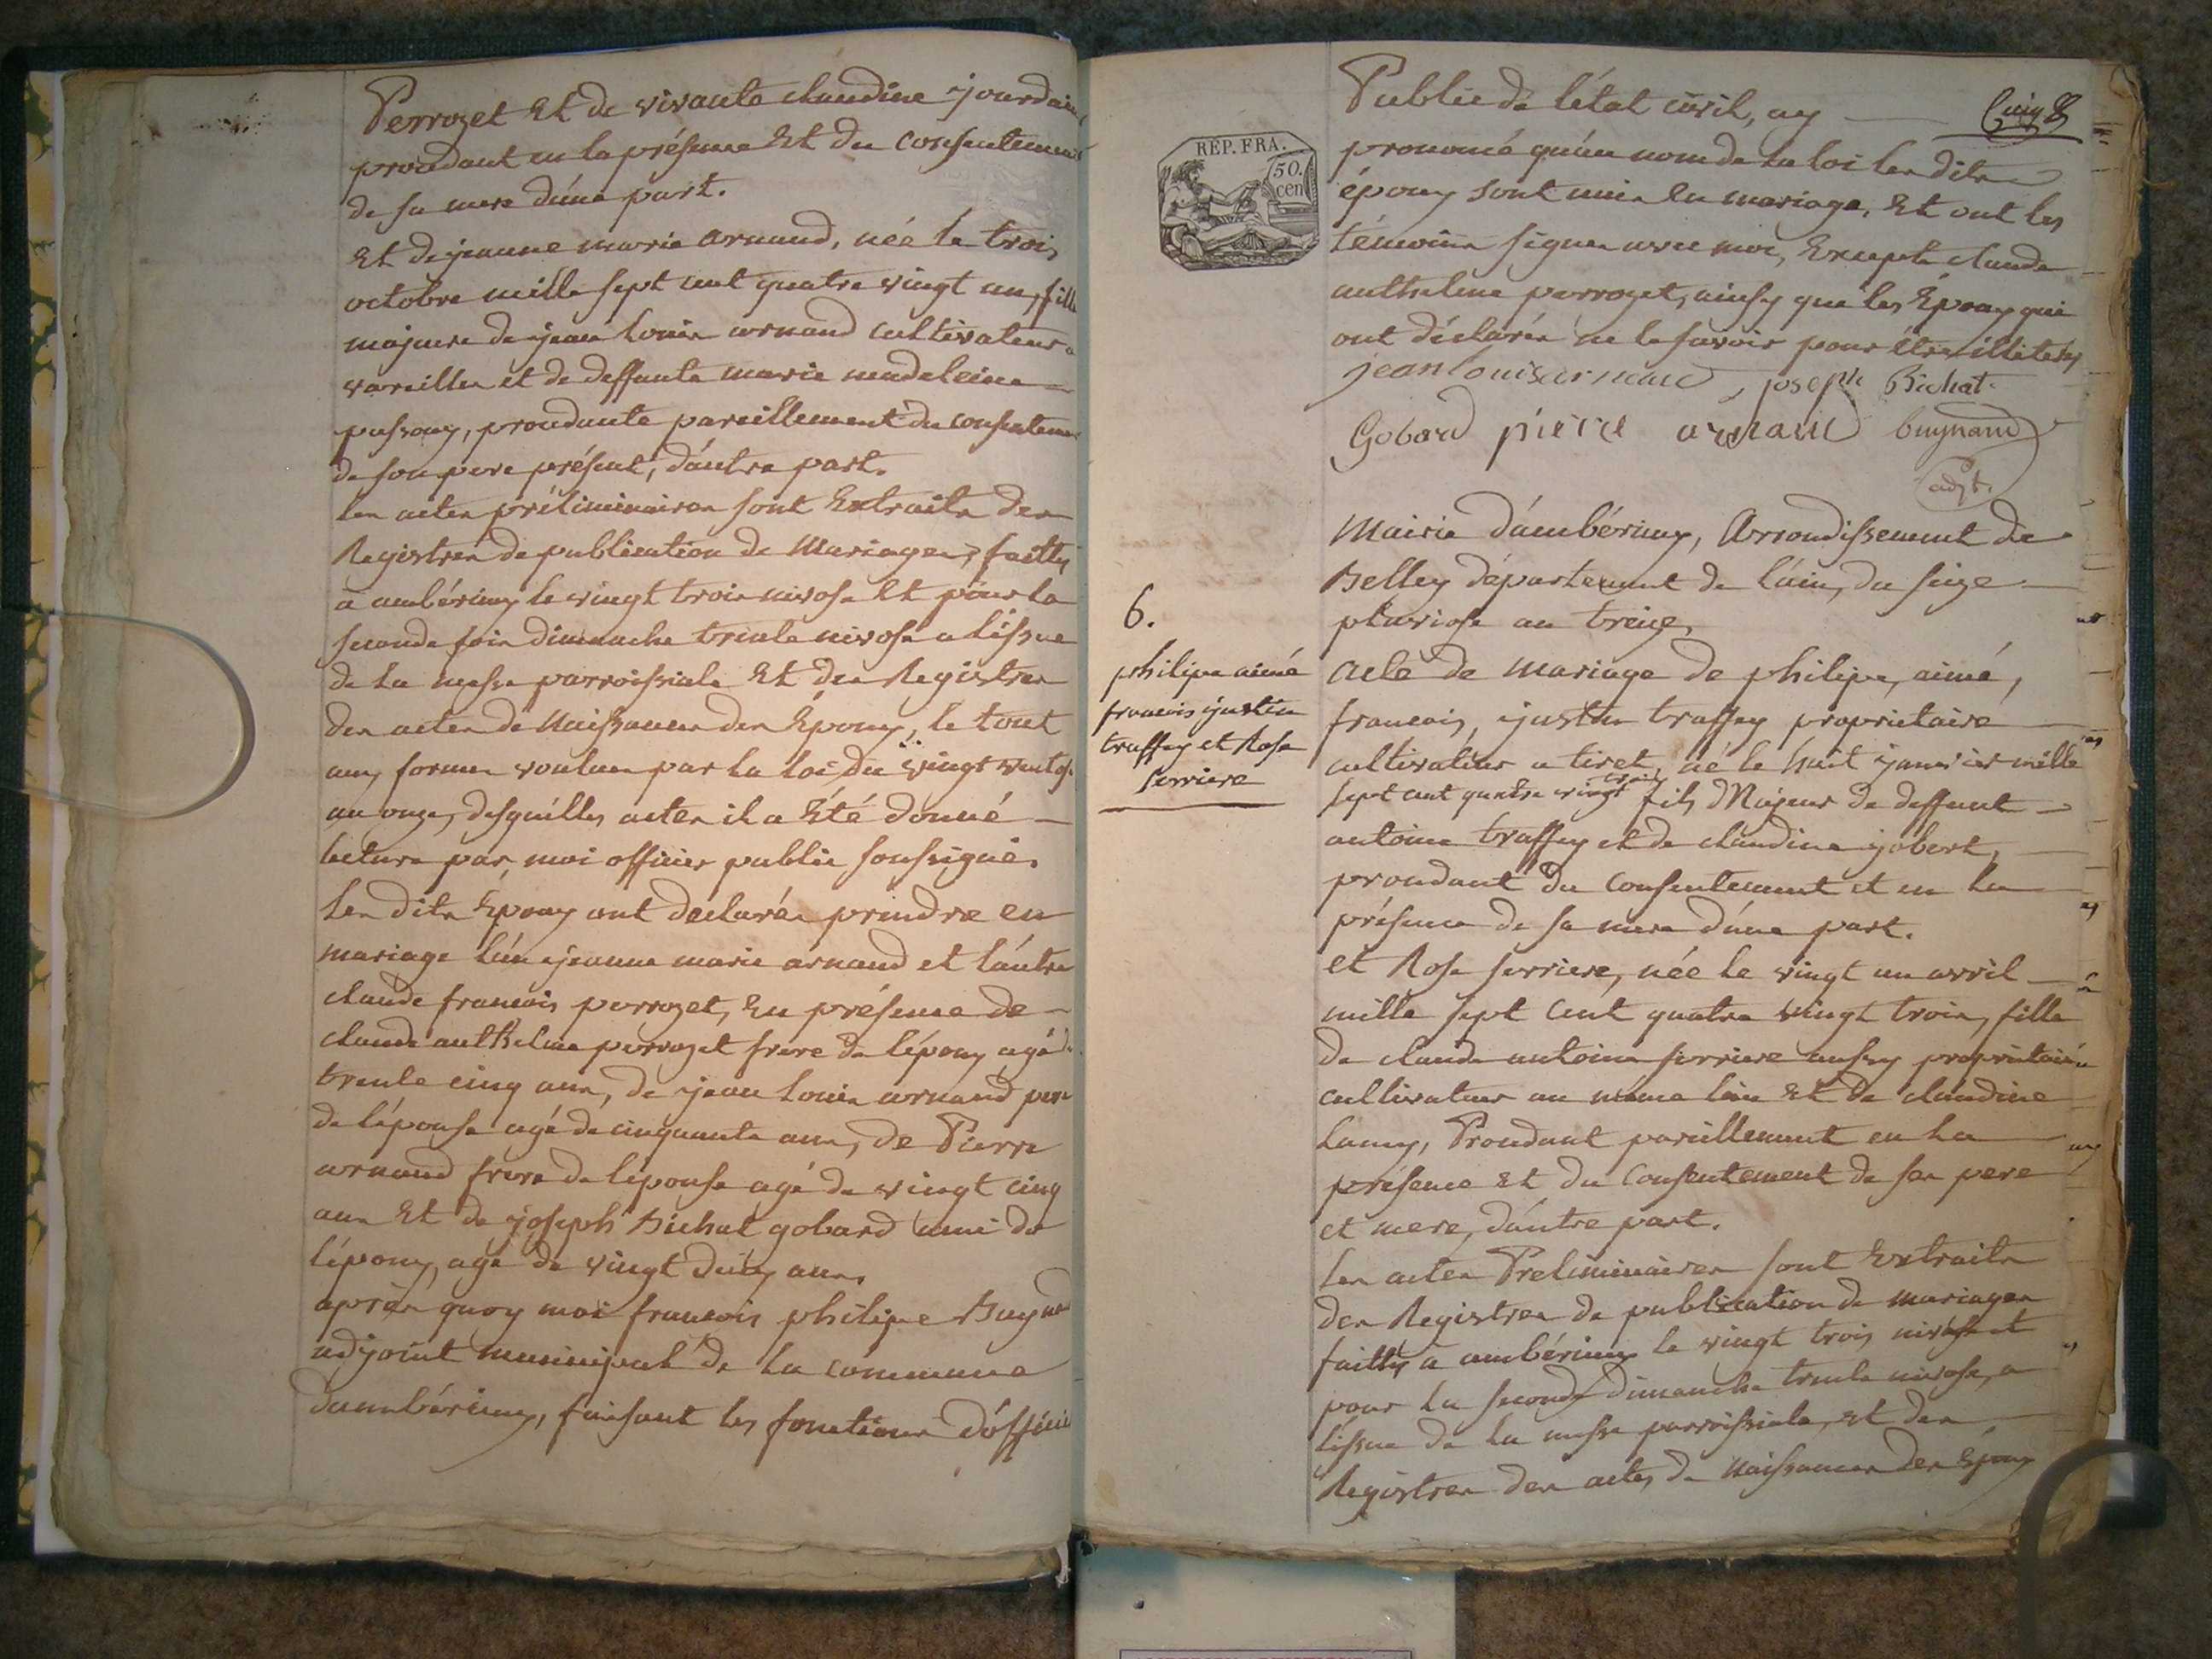 Perrozet Et de vivante claudine jourdain
procedant en la présence Et du Consentement
de sa mere d'une part.
Et de jeanne marie arnaud, née le trois
octobre mille sept cent quatre vingt un, fille
majeure de jean louis arnaud cultivateur a
vareilles et de deffunte marie madeleine
procedante pareillement du consentement
de son pere présent, d'autre part.
les actes préliminaires sont Extraits des
Registres de publication de Mariages, faittes
a ambérieux le vingt trois nivose Et pour la
seconde fois dimanche trente nivose a lissue
de la messe parroissiale Et des Registres
des actes de Naissances des Epoux, le tout
aux formes voulues par la loi du vingt ventose
an onze, desquelles actes il a Eté donné
lecture par moi officier public soussigné.
les dits Epoux ont declarés prendre en
mariage l'un jeanne marie arnaud et l'autre
claude francois perrozet, En présence de
claude anthelme perrozet frere de l'époux agé de
trente cinq ans, de jean louis arnaud pere
de l'épouse agé de cinquante ans, de Pierre
arnaud frere de lépouse agé de vingt cinq
ans Et de joseph Bichat gobard ami de
l'époux, agé de vingt deux ans.
après quoy moi francois philipe Buynand
adjoint municipal de la commune
d'ambérieux, faisant les fonctions d'officier
Public de l'état civil, ay
Cinq
REP. FRA.
50.
cen
prononcé qu'au nom de la loi les dits
époux sont unis en mariage, Et ont les
témoins signes avec moi, Excepté claude
anthelme perrozet, ainsy que les Epoux qui
ont déclarés ne le savoir pour être illiterés
jean louis arnaud, joseph Bichat
Gobard pierre arnaud buynand
adjt.
Mairie d'ambérieux, Arrondissement de
Belley département de l'ain, du seize
pluviose an treize,
6.
philipe aimé
francois justin
truffey et Rose
serriere
acte de Mariage de philipe, aimé,
francois, justin truffey propriétaire
cultivateur a tiret, né le huit janvier mille
sept cent quatre vingt trois fils Majeur de deffunt
antoine truffey et de claudine jobert,
procedant du Consentement et en la
présence de sa mere d'une part.
et Rose serriere, née le vingt un avril
mille sept cent quatre vingt trois, fille
de claude antoine serriere aussy propriétaire
cultivateur au même lieu Et de claudine
Lamy, Procedant pareillement en la
présence Et du Consentement de ses pere
et mere, d'autre part.
les actes Preliminaires sont Extraits
des Registres de publication de mariages
faittes a ambérieux le vingt trois nivose et
pour la seconde dimanche trente nivose, a
l'issue de la messe parroissiale, et des
Registres des actes de Naissances des Epoux